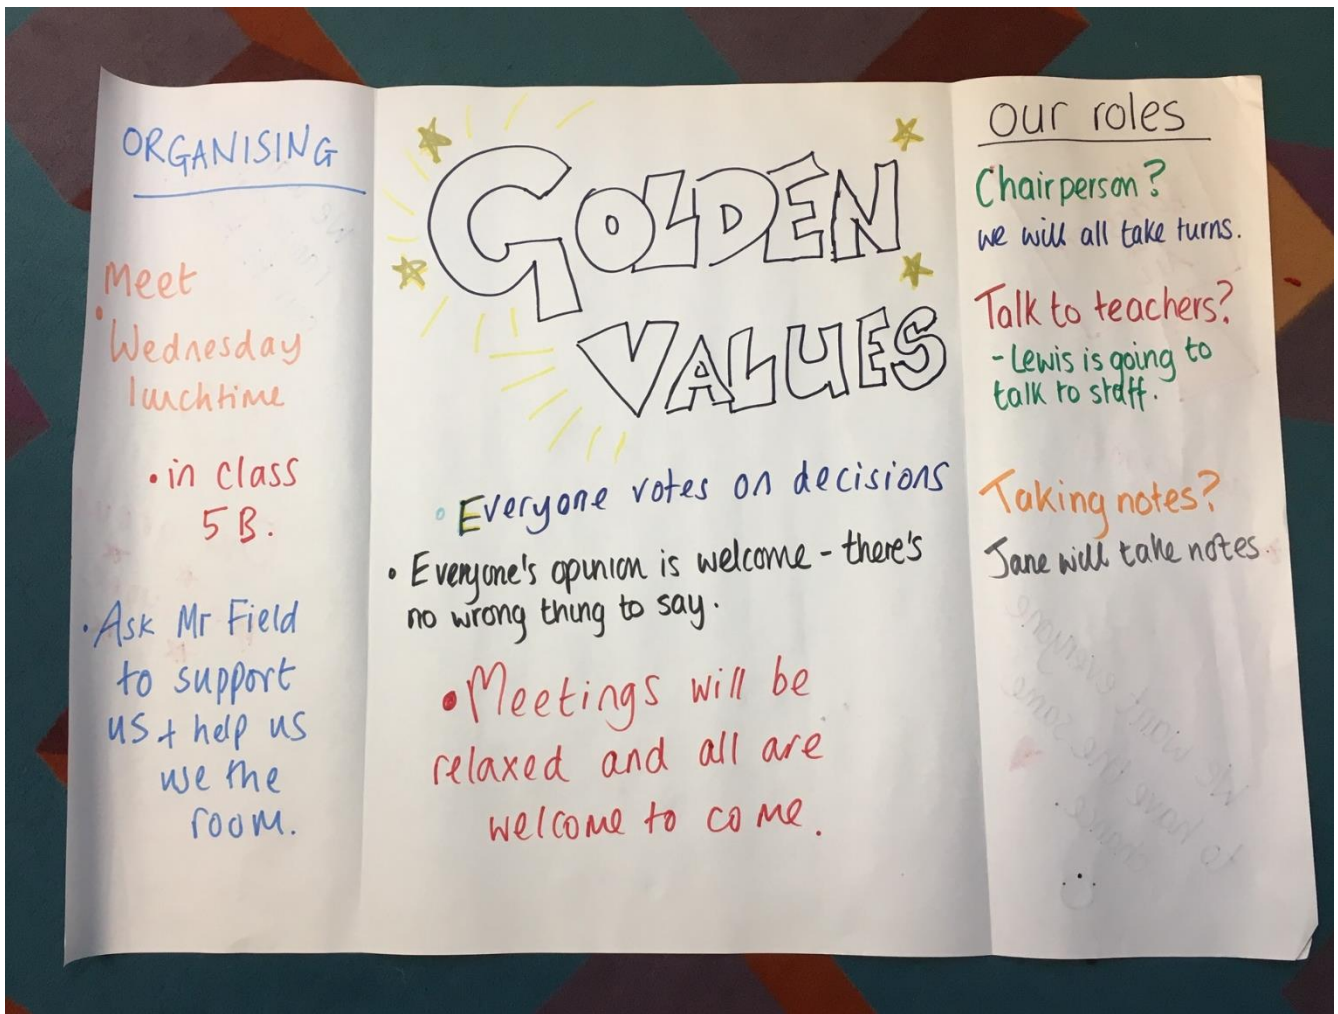 ORGANISING
Meet
• Wednesday
lunchtime
• in class
5B.
• Ask Mr Field
to support
us + help us
use the
room.
GOLDEN
VALUES
• Everyone votes on decisions
• Everyone's opinion is welcome - there's
no wrong thing to say.
• Meetings will be
relaxed and all are
welcome to come.
our roles
Chairperson?
we will all take turns.
Talk to teachers?
- Lewis is going to
talk to staff.
Taking notes?
Jane will take notes.
We want everyone
to have the same
chance